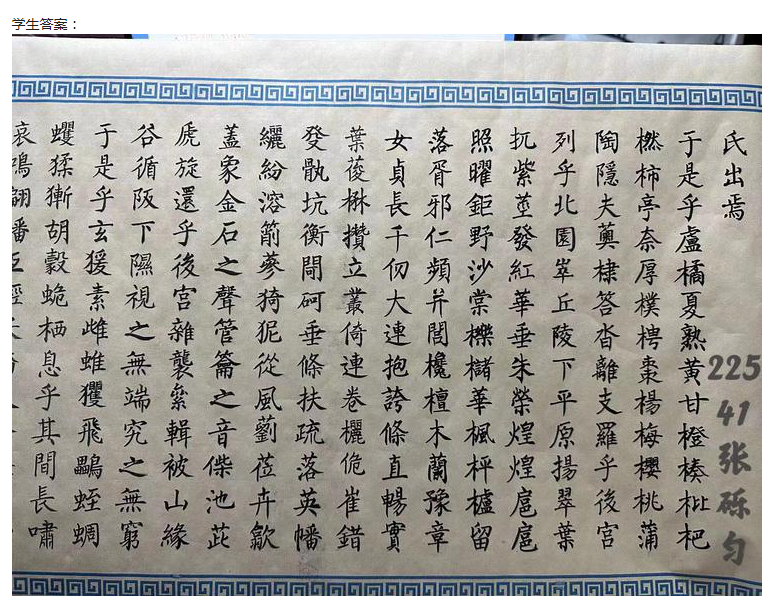 学生答案：
氏出焉
于是乎盧橘夏熟黃甘橙楱枇杷
橪柿亭奈厚樸梬棗楊梅櫻桃蒲
陶隱夫薁棣答沓離支羅乎後宮
列乎北園崒丘陵下平原揚翠葉
扤紫莖發紅華垂朱榮煌煌扈扈
照曜鉅野沙棠櫟櫧華楓枰櫨留
落胥邪仁頻并閭欃檀木蘭豫章
女貞長千仞大連抱誇條直暢實
葉葰楙攢立叢倚連卷欐佹崔錯
癹骫坑衡閜砢垂條扶疏落英幡
纚紛溶箾蔘猗狔從風藰莅卉歙
蓋象金石之聲管籥之音偨池茈
虒旋還乎後宮雜襲絫輯被山緣
谷循阪下隰視之無端究之無窮
于是乎玄猨素雌蜼玃飛鸓蛭蜩
蠼猱獑胡豰蛫栖息乎其間長嘯
哀鳴翩幡互經
225
41
张砾匀